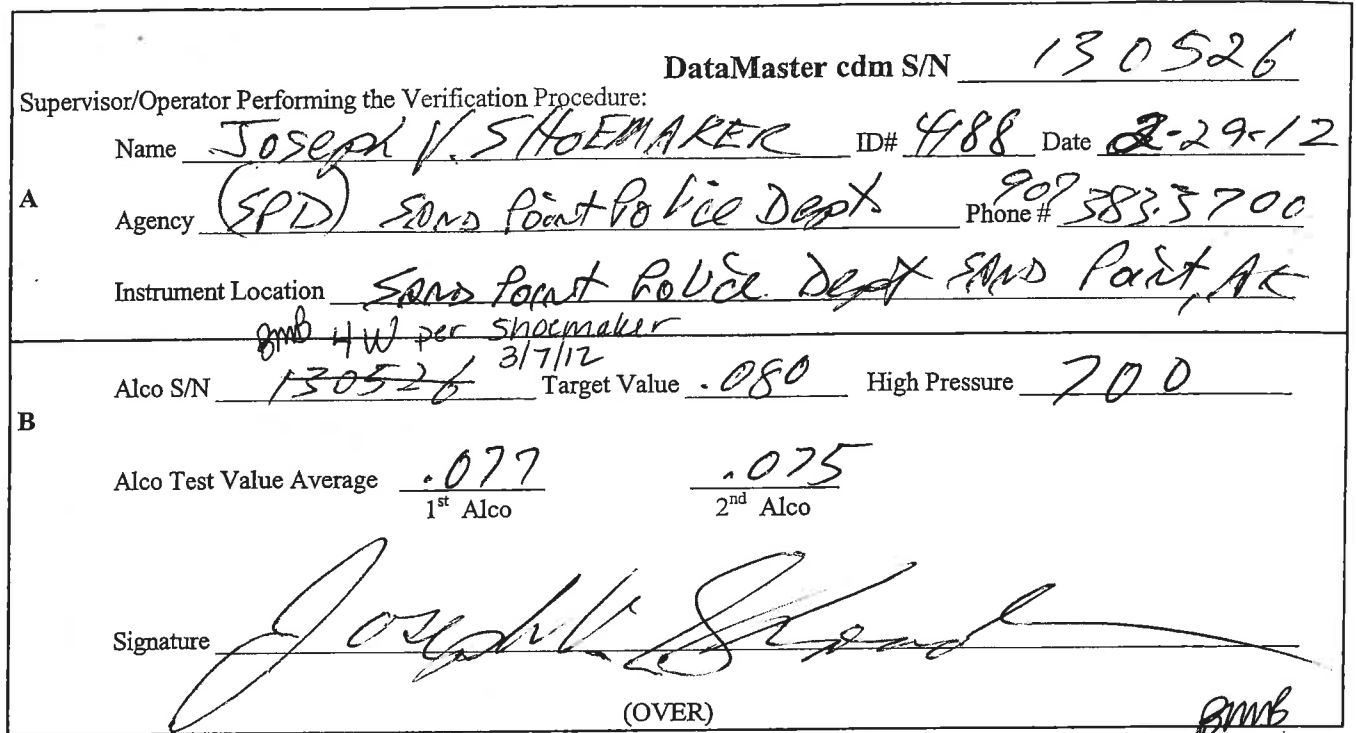 DataMaster cdm S/N 130526
Supervisor/Operator Performing the Verification Procedure:
Name Joseph V. SHOEMAKER ID# 4188 Date 2-29-12
A
Agency (SPD) SAND Point Police Dept Phone # 907 383.3700
Instrument Location SAND Point Police Dept SAND Point, AK
BMB 4W per Shoemaker
3/7/12
Alco S/N 130526 Target Value .080 High Pressure 700
B
Alco Test Value Average .077 .075
1st Alco 2nd Alco
Signature Joseph V. Shoemaker
(OVER)
BMB